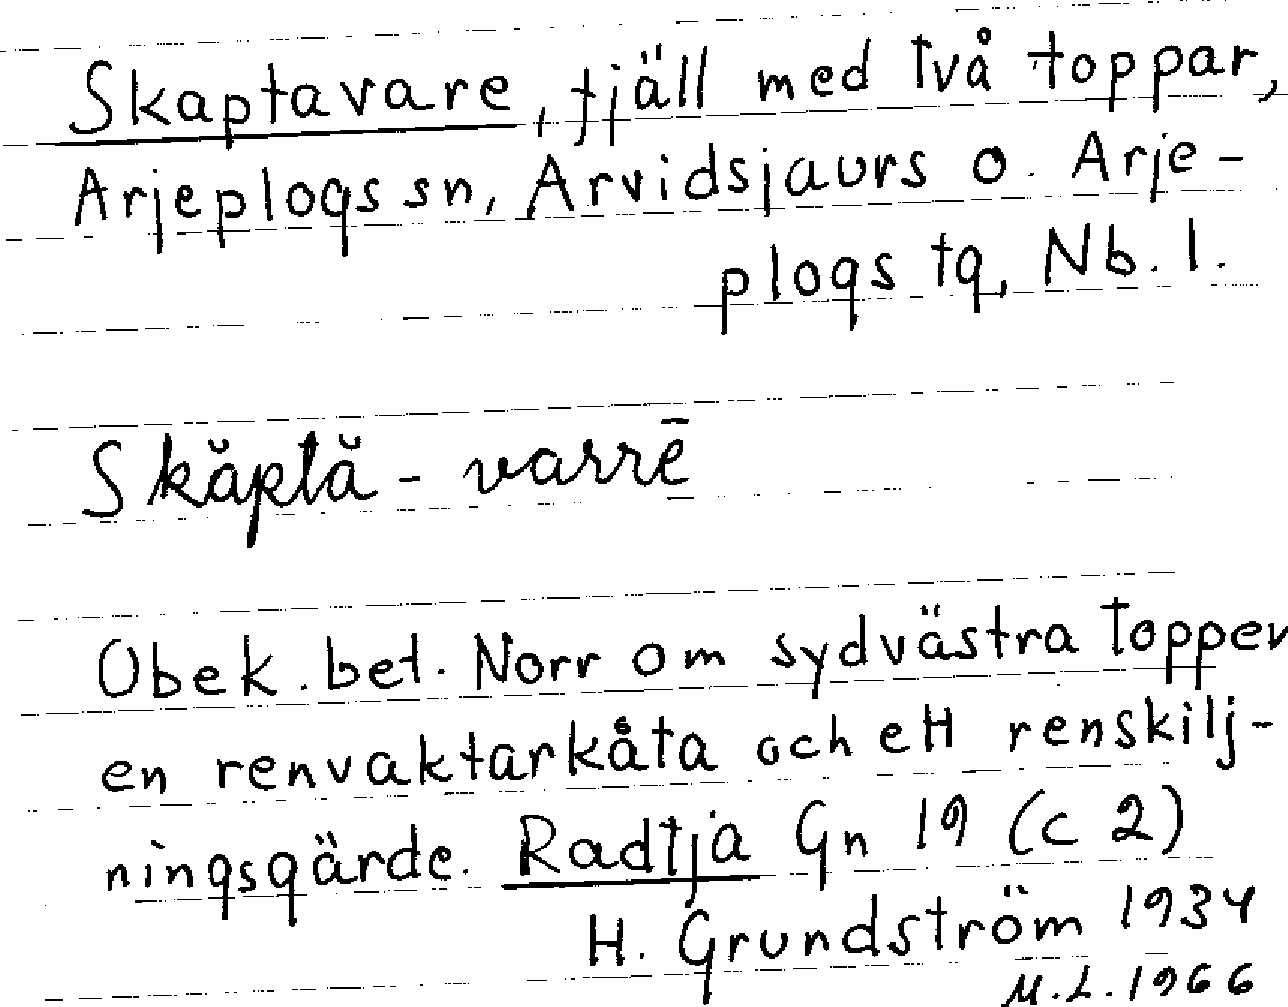 Skaptavare, fjäll med två toppar,
Arjeplogs sn, Arvidsjaurs o. Arje-
plogs tg, Nb. l.
Skăptă-varrē
Obek. bet. Norr om sydvästra toppen
en renvaktarkåta och ett renskilj-
ningsgärde. Radtja Gn 19 (c 2)
H. Grundström 1934
M.L. 1966